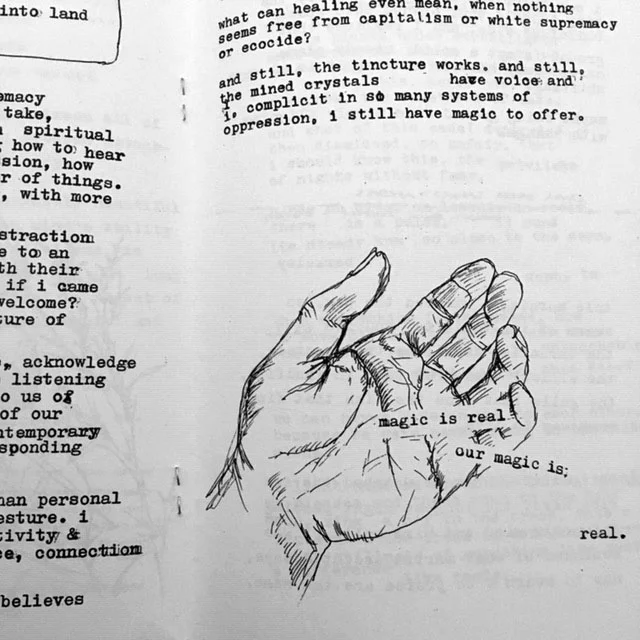 into land
emacy
take,
spiritual
how to hear
sion, how
r of things.
, with more
straction
e to an
th their
if i came
welcome?
ture of
, acknowledge
listening
o us of
of our
ntemporary
sponding
man personal
esture. i
tivity &
ce, connection
believes
what can healing even mean, when nothing
seems free from capitalism or white supremacy
or ecocide?
and still, the tincture works. and still,
the mined crystals have voice and
i, complicit in so many systems of
oppression, i still have magic to offer.
magic is real.
our magic is;
real.